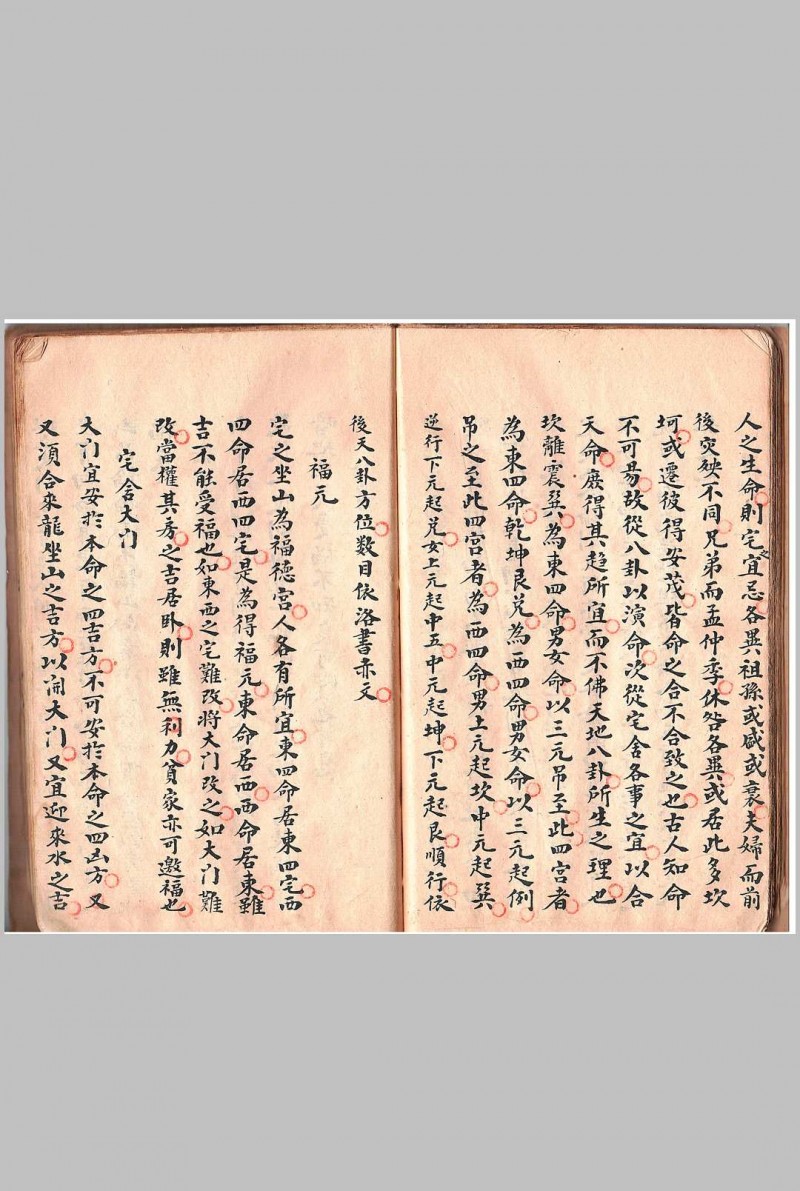 人之生命則宅之宜忌各異祖孫或咸或衰夫婦而前
後灾殃不同兄弟而孟仲季休咎各異或居此多坎
坷或遷彼得安茂皆命之合不合致之也古人知命
不可易故從八卦以演命次從宅舍各事之宜以合
天命庻得其趋所宜而不佛天地八卦所生之理也
坎離震巽為東四命男女命以三元吊至此四宮者
為東四命乾坤艮兌為西四命男女命以三元起例
吊之至此四宮者為西四命男上元起坎中元起巽
逆行下元起兌女上元起中五中元起坤下元起艮順行依
後天八卦方位数目依洛書亦文
福元
宅之坐山為福徳宮人各有所宜東四命居東四宅西
四命居西四宅是為得福元東命居西西命居東雖
吉不能受福也如東西之宅難改將大门改之如大门難
改當權其房之吉居卧則雖無利力貧家亦可邀福也
宅舍大门
大门宜安於本命之四吉方不可安於本命之四凶方又
又須合来龍坐山之吉方以闹大门又宜迎来水之吉